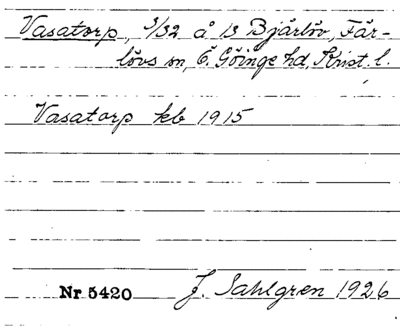 Vasatorp, 1/32 å 13 Bjärlöv, Fär-
lövs sn, Ö. Göinge hd, Krist. l.
Vasatorp kb 1915
Nr 5420 J. Sahlgren 1926